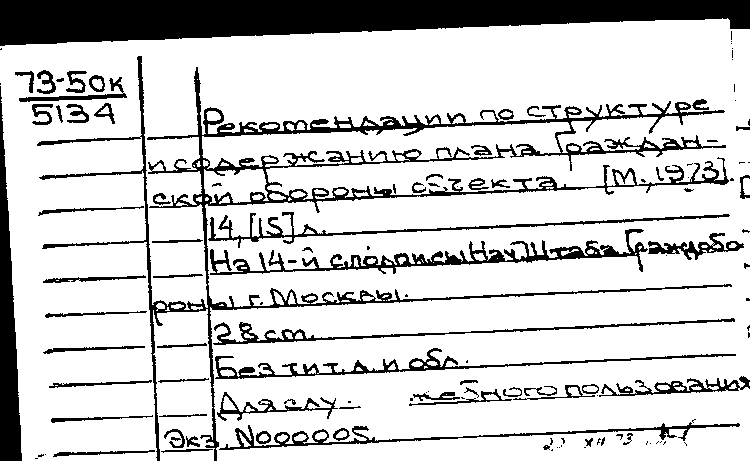 73-50к
5134
Рекомендации по структуре
и содержанию плана Граждан-
ской обороны объекта. [М., 1973].
14, [15] л.
На 14-й с. подпись: Нач. Штаба Граждобо
роны г. Москвы.
28 cm.
Без тит. л. и обл.
Для слу- жебного пользования
Экз. N000005.
XII 73